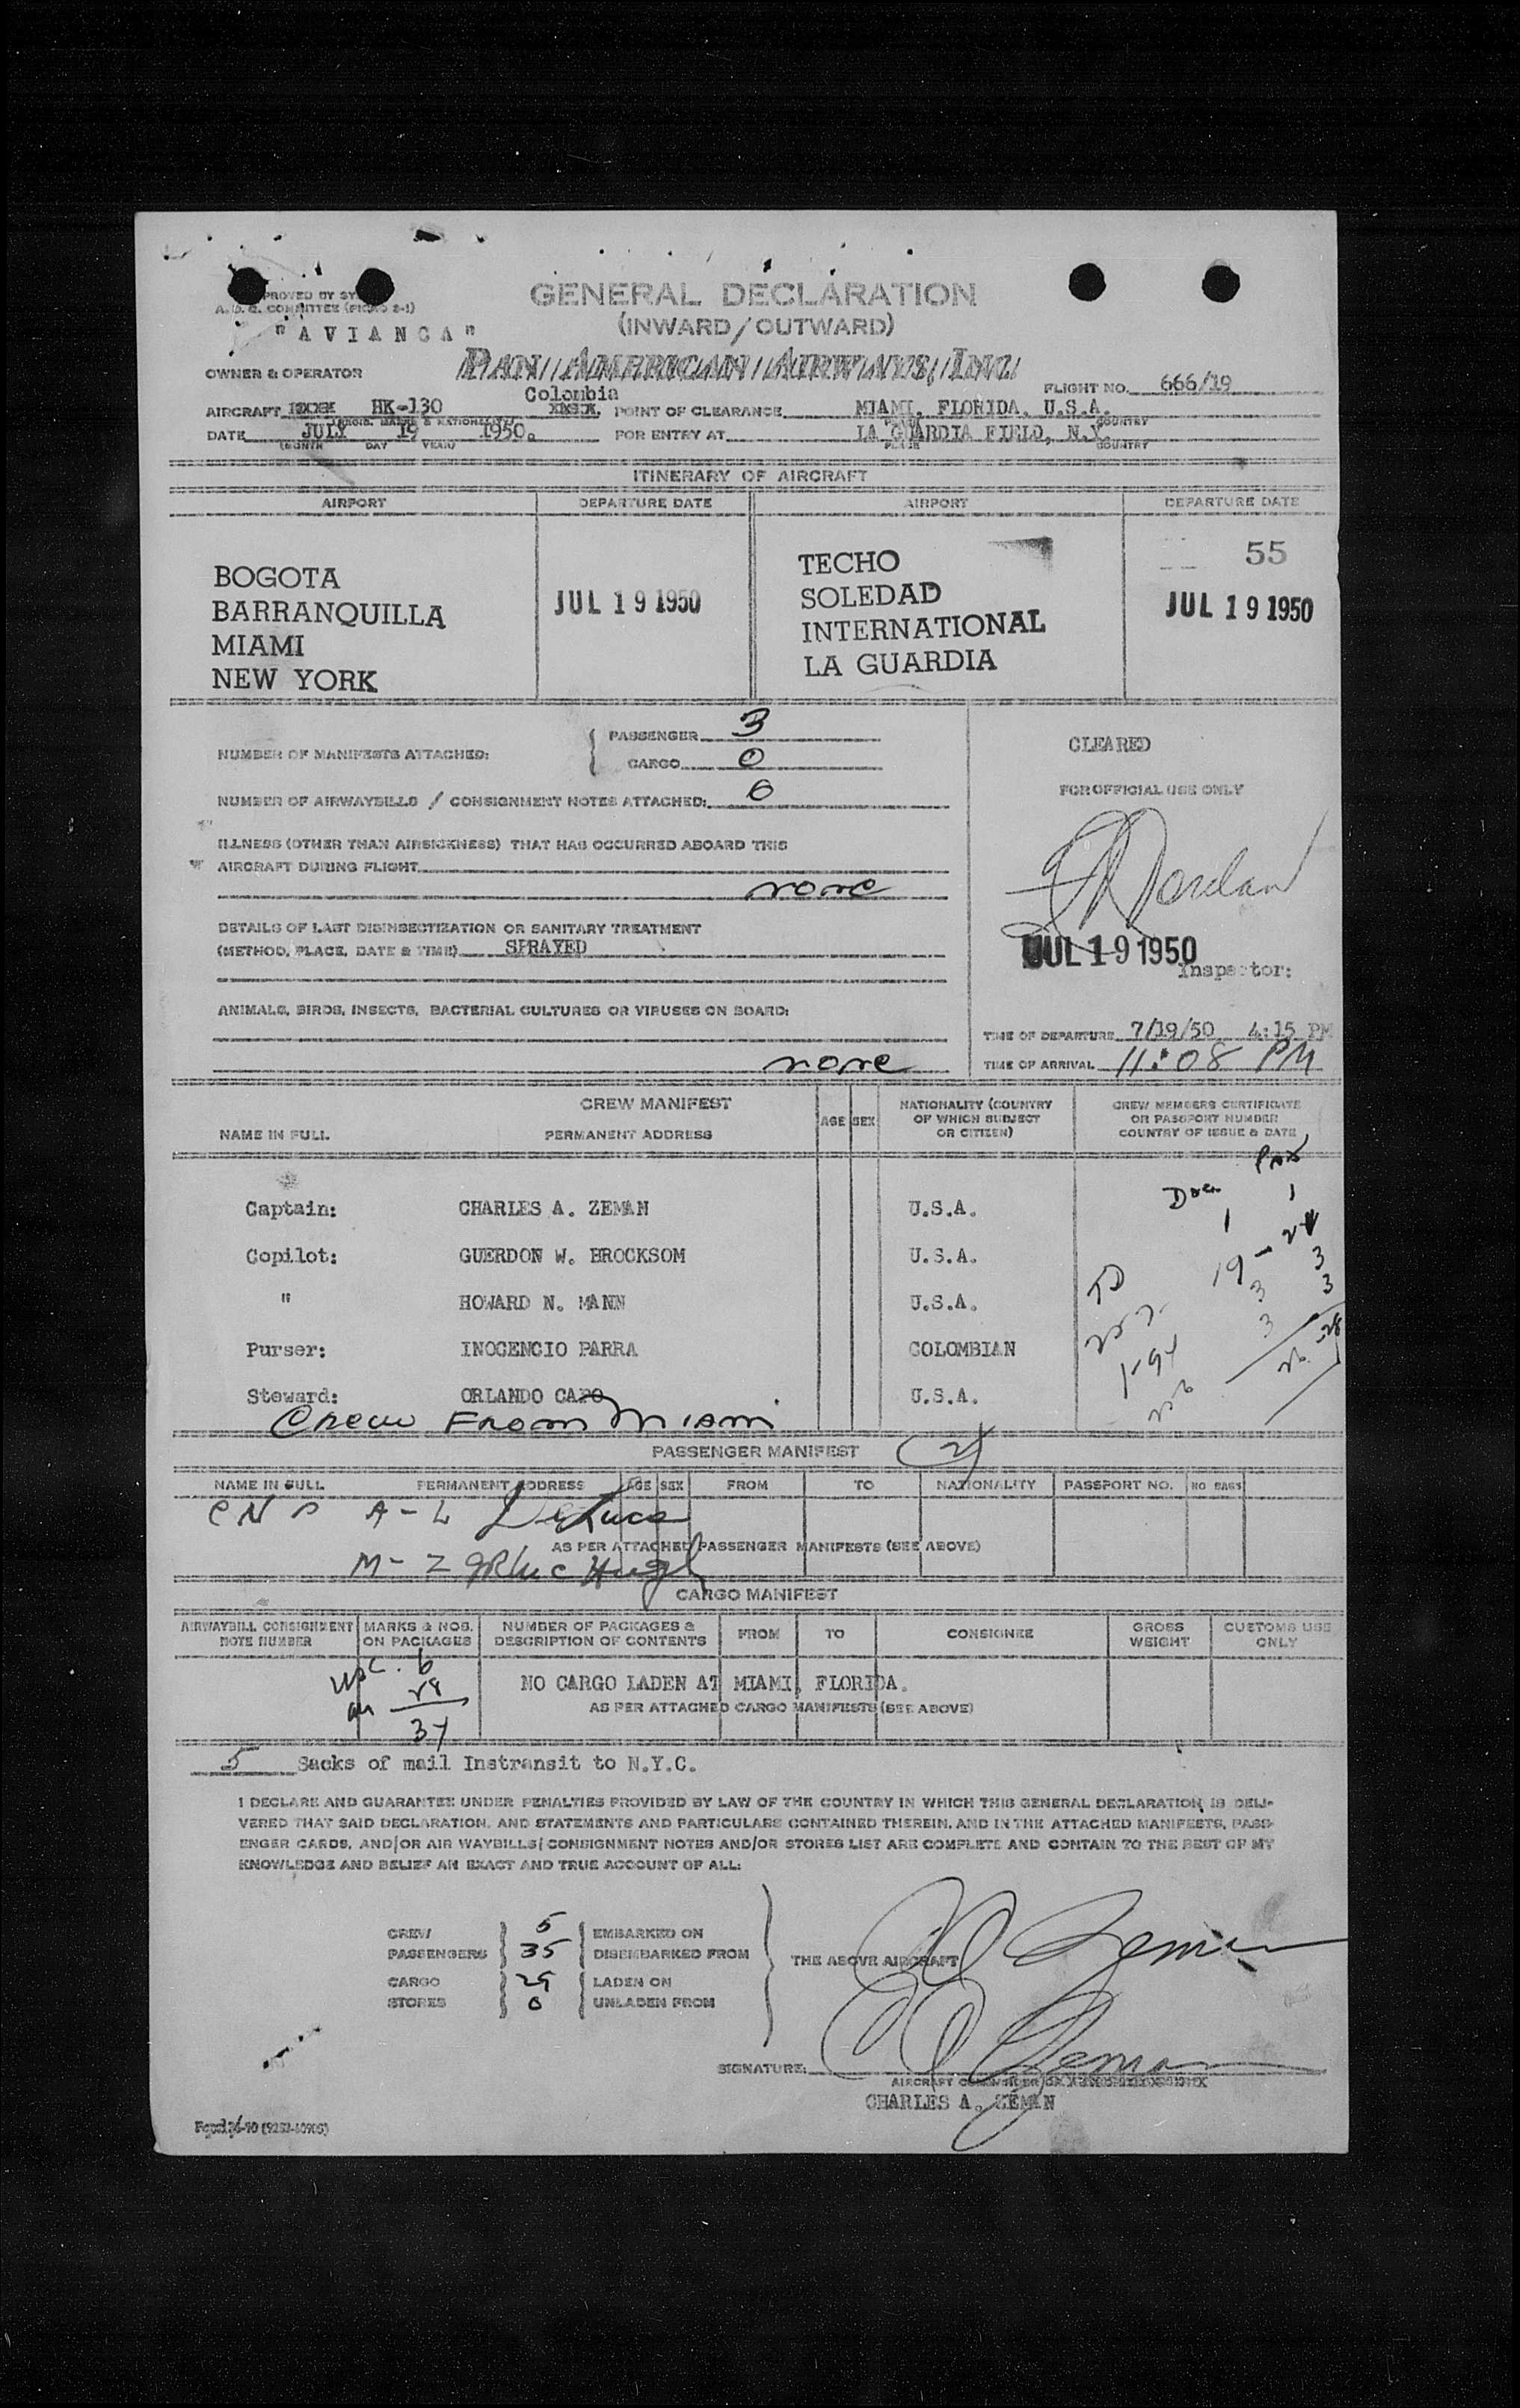 GENERAL DECLARATION
(INWARD/OUTWARD)
A.D.C. COMMITTEE
"AVIANCA"
PAN AMERICAN AIRWAYS, INC.
OWNER & OPERATOR
FLIGHT NO. 666/19
Colombia
AIRCRAFT HK-130 POINT OF CLEARANCE MIAMI, FLORIDA, U.S.A.
DATE JULY 19 1950. FOR ENTRY AT LA GUARDIA FIELD, N.Y.
DAY YEAR) PLACE COUNTRY
ITINERARY OF AIRCRAFT
AIRPORT DEPARTURE DATE AIRPORT DEPARTURE DATE
55
BOGOTA TECHO
BARRANQUILLA JUL 19 1950 SOLEDAD JUL 19 1950
MIAMI INTERNATIONAL
NEW YORK LA GUARDIA
PASSENGER 3
NUMBER OF MANIFESTS ATTACHED: CLEARED
CARGO 0
NUMBER OF AIRWAYBILLS / CONSIGNMENT NOTES ATTACHED: 6 FOR OFFICIAL USE ONLY
ILLNESS (OTHER THAN AIRSICKNESS) THAT HAS OCCURRED ABOARD THIS
AIRCRAFT DURING FLIGHT
none
Jordan
DETAILS OF LAST DISINSECTIZATION OR SANITARY TREATMENT
(METHOD, PLACE, DATE & TIME) SPRAYED
JUL 19 1950
Inspector:
ANIMALS, BIRDS, INSECTS, BACTERIAL CULTURES OR VIRUSES ON BOARD:
TIME OF DEPARTURE 7/19/50 4:15 PM
none TIME OF ARRIVAL 11:08 PM
CREW MANIFEST
NAME IN FULL PERMANENT ADDRESS AGE SEX NATIONALITY (COUNTRY OF WHICH SUBJECT OR CITIZEN) CREW MEMBERS CERTIFICATE OR PASSPORT NUMBER COUNTRY OF ISSUE & DATE
Captain: CHARLES A. ZEMAN U.S.A.
Copilot: GUERDON W. BROCKSOM U.S.A.
" HOWARD N. MANN U.S.A.
Purser: INOCENCIO PARRA COLOMBIAN
Steward: ORLANDO CAPO U.S.A.
Crew From Miami
PASSENGER MANIFEST
NAME IN FULL PERMANENT ADDRESS AGE SEX FROM TO NATIONALITY PASSPORT NO. NO BAGS
A - L DeLuca
AS PER ATTACHED PASSENGER MANIFESTS (SEE ABOVE)
M - Z
CARGO MANIFEST
AIRWAYBILL CONSIGNMENT NOTE NUMBER MARKS & NOS. ON PACKAGES NUMBER OF PACKAGES & DESCRIPTION OF CONTENTS FROM TO CONSIGNEE GROSS WEIGHT CUSTOMS USE ONLY
NO CARGO LADEN AT MIAMI, FLORIDA.
AS PER ATTACHED CARGO MANIFESTS (SEE ABOVE)
5 Sacks of mail Instransit to N.Y.C.
I DECLARE AND GUARANTEE UNDER PENALTIES PROVIDED BY LAW OF THE COUNTRY IN WHICH THIS GENERAL DECLARATION IS DELI-
VERED THAT SAID DECLARATION, AND STATEMENTS AND PARTICULARS CONTAINED THEREIN, AND IN THE ATTACHED MANIFESTS, PASS-
ENGER CARDS, AND/OR AIR WAYBILLS/CONSIGNMENT NOTES AND/OR STORES LIST ARE COMPLETE AND CONTAIN TO THE BEST OF MY
KNOWLEDGE AND BELIEF AN EXACT AND TRUE ACCOUNT OF ALL:
CREW 5 EMBARKED ON
PASSENGERS 35 DISEMBARKED FROM THE ABOVE AIRCRAFT
CARGO 29 LADEN ON
STORES 0 UNLADEN FROM
SIGNATURE:
CHARLES A. ZEMAN